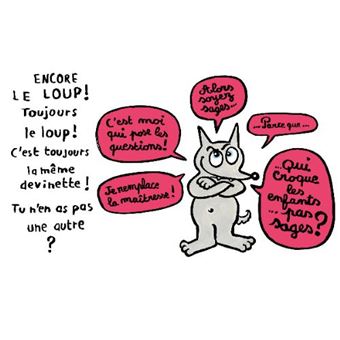 ENCORE
LE LOUP!
Toujours
le loup!
C'est toujours
la même
devinette!
Tu n'en as pas
une autre
?
C'est moi
qui pose les
questions!
Je remplace
la maîtresse!
Alors
soyez
sages...
...Parce que...
...Qui
croque
les
enfants
...pas
sages?